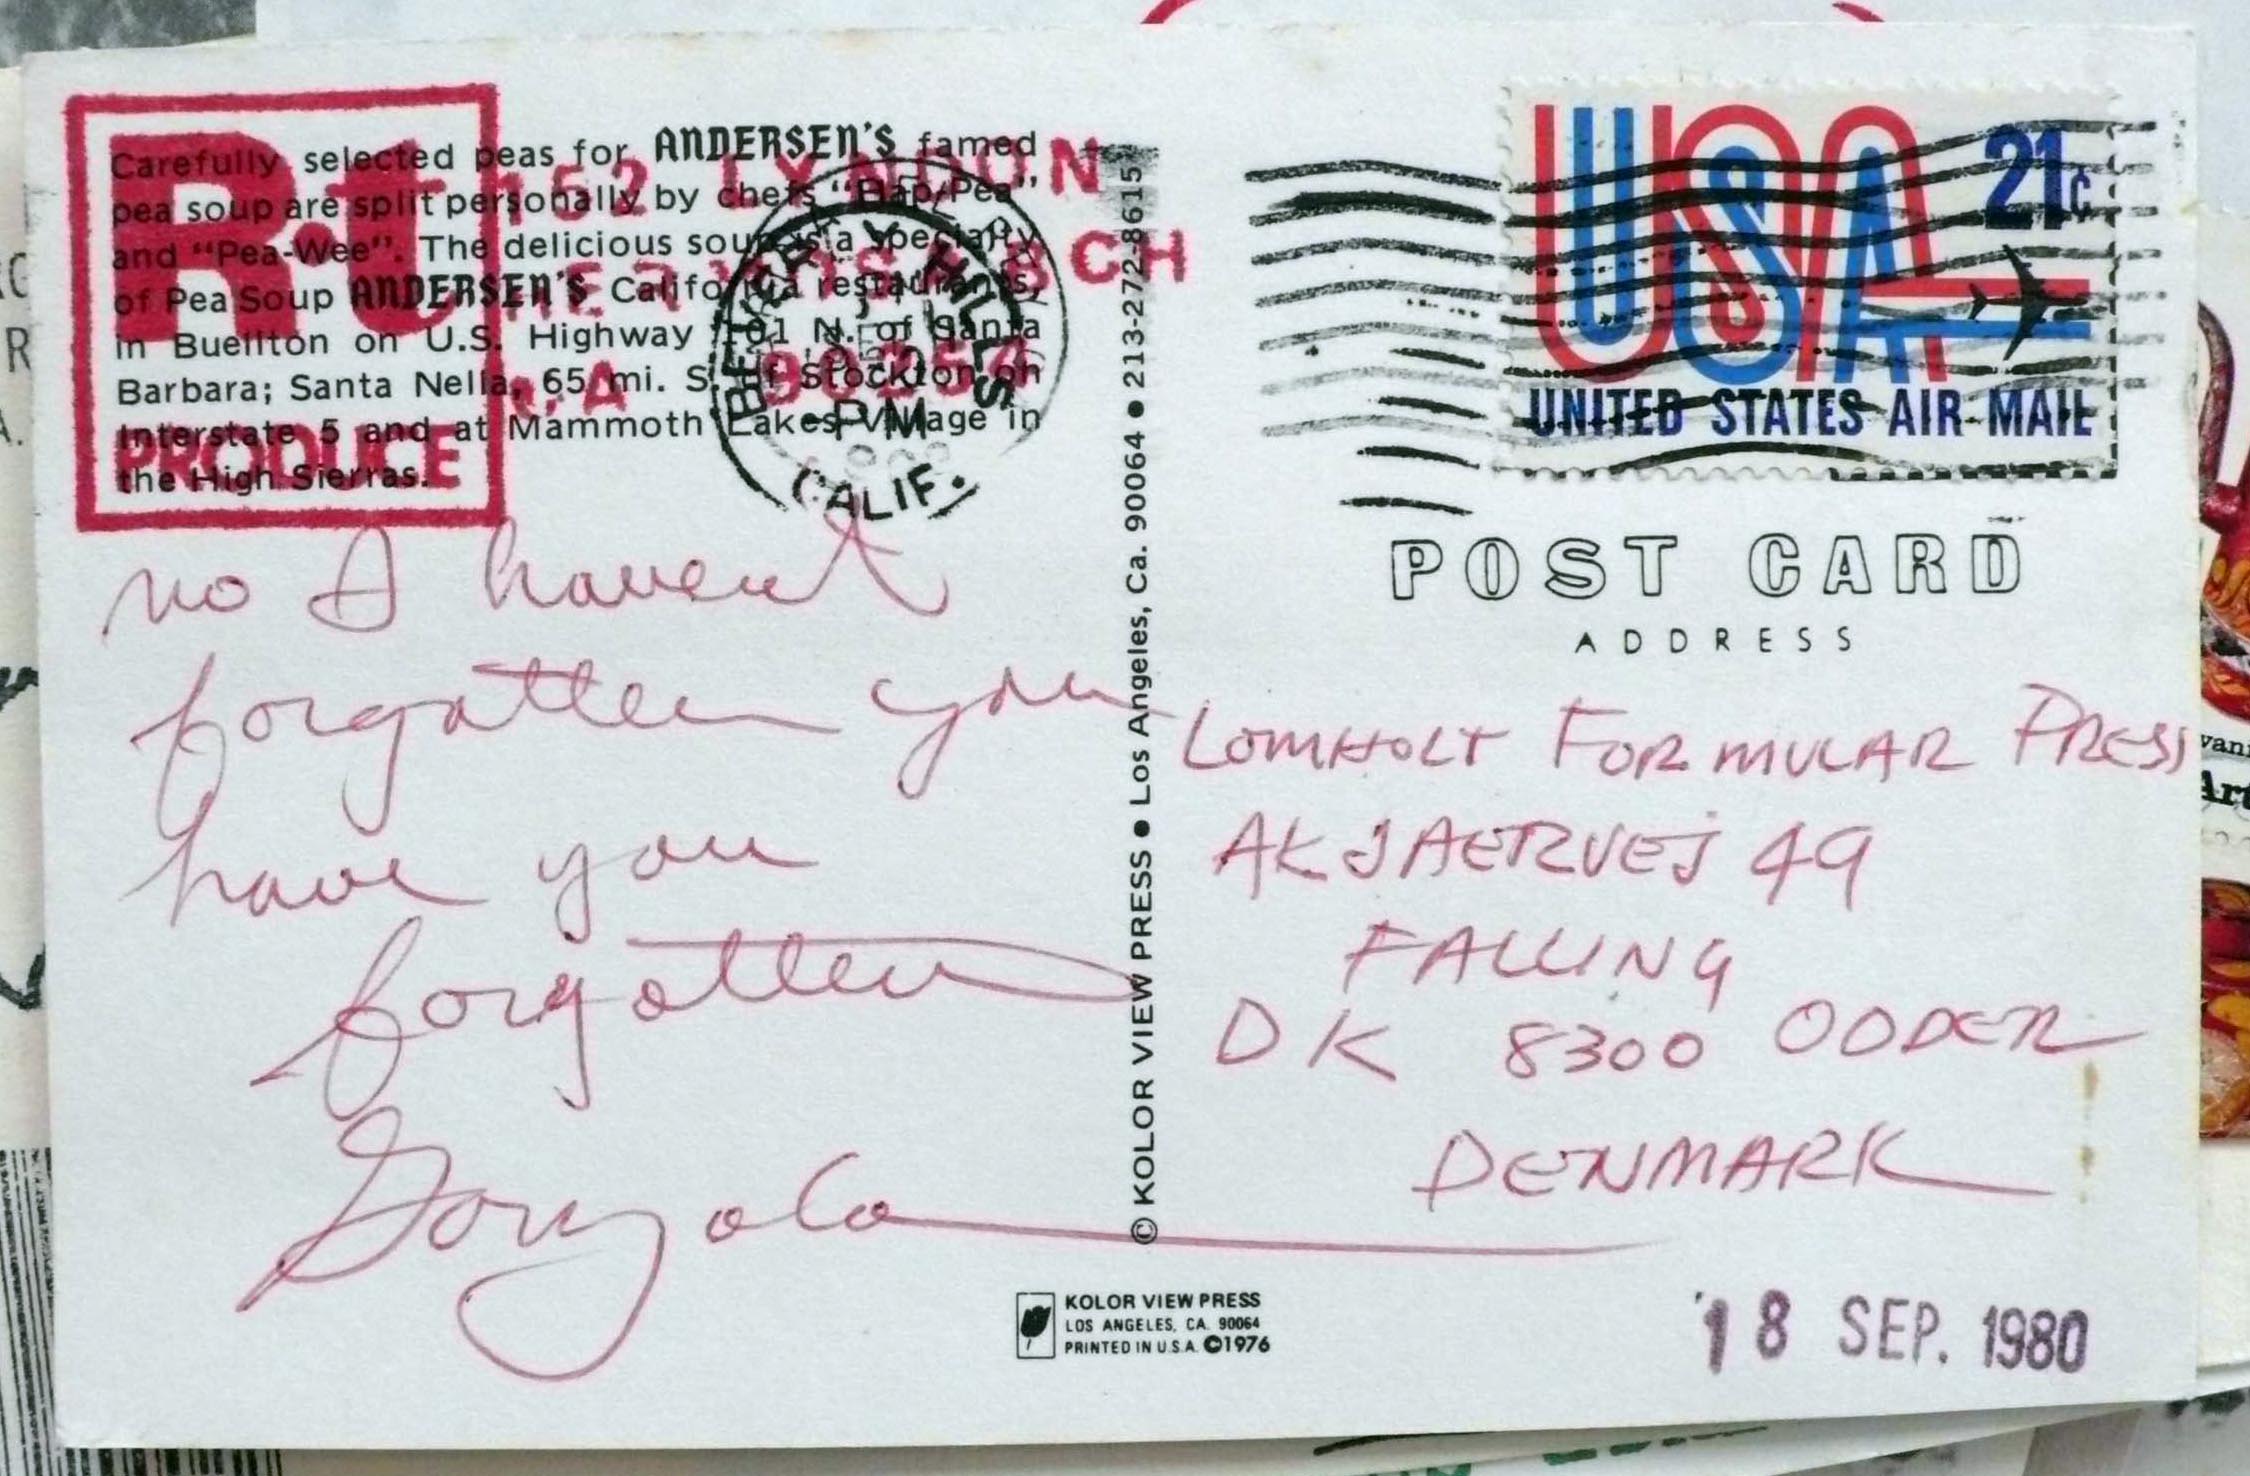 Carefully selected peas for ANDERSEN'S famed
pea soup are split personally by chefs "Hap/Pea"
and "Pea-Wee". The delicious soup is a specialty
of Pea Soup ANDERSEN'S California restaurants,
in Buellton on U.S. Highway 101 N. of Santa
Barbara; Santa Nella, 65 mi. S. of Stockton on
Interstate 5 and at Mammoth Lakes Village in
the High Sierras.
PRODUCE
152 LYNDON
HERMOSA BCH
CA 90254
BEVERLY HILLS
PM
CALIF.
no I havent
forgotten you
have you
forgotten
Gonzalo
© KOLOR VIEW PRESS ● Los Angeles, Ca. 90064 ● 213-272-8615
KOLOR VIEW PRESS
LOS ANGELES, CA. 90064
PRINTED IN U.S.A. ©1976
USA 21c
UNITED STATES AIR MAIL
POST CARD
ADDRESS
LOMHOLT FORMULAR PRESS
AKJAERVEJ 49
FALLING
DK 8300 ODDER
DENMARK
18 SEP. 1980